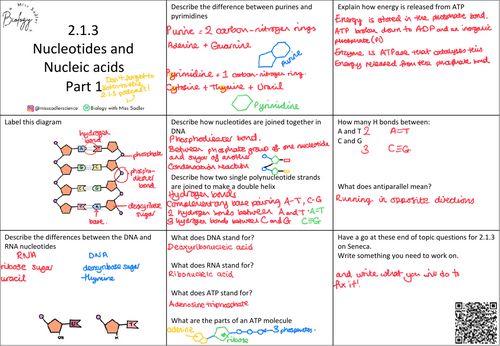 Miss Sadler
Biology
2.1.3
Nucleotides and
Nucleic acids
Part 1
Don't forget to
2.1.3
@missadlerscience
Biology with Miss Sadler
Describe the difference between purines and
pyrimidines
Purine = 2 carbon-nitrogen rings
Adenine + Guanine
Purine
Pyrimidine = 1 carbon-nitrogen ring
Cytosine + Thymine + Uracil
Pyrimidine
Explain how energy is released from ATP
Energy is stored in the phosphate bond.
ATP broken down to ADP and an inorganic
phosphate (Pi)
Enzyme is ATPase that catalyses this
Energy released from the phosphate bond.
Label this diagram
hydrogen
bond
phosphate
phospho-
diester
bond
deoxyribose
sugar
base
Describe how nucleotides are joined together in
DNA
Phosphodiester bond.
Between phosphate group of one nucleotide
and sugar of another
Condensation reaction
Describe how two single polynucleotide strands
are joined to make a double helix
Hydrogen bonds
Complementary base pairing A-T, C-G
2 hydrogen bonds between A and T A=T
3 hydrogen bonds between C and G C≡G
How many H bonds between:
A and T 2 A=T
C and G
3 C≡G
What does antiparallel mean?
Running in opposite directions
Describe the differences between the DNA and
RNA nucleotides
RNA DNA
ribose sugar deoxyribose sugar
uracil thymine
OH H
What does DNA stand for?
Deoxyribonucleic acid
What does RNA stand for?
Ribonucleic acid
What does ATP stand for?
Adenosine triphosphate
What are the parts of an ATP molecule
adenine 3 phosphates
ribose
Have a go at these end of topic questions for 2.1.3
on Seneca.
Write something you need to work on.
and write what you will do to
fix it!